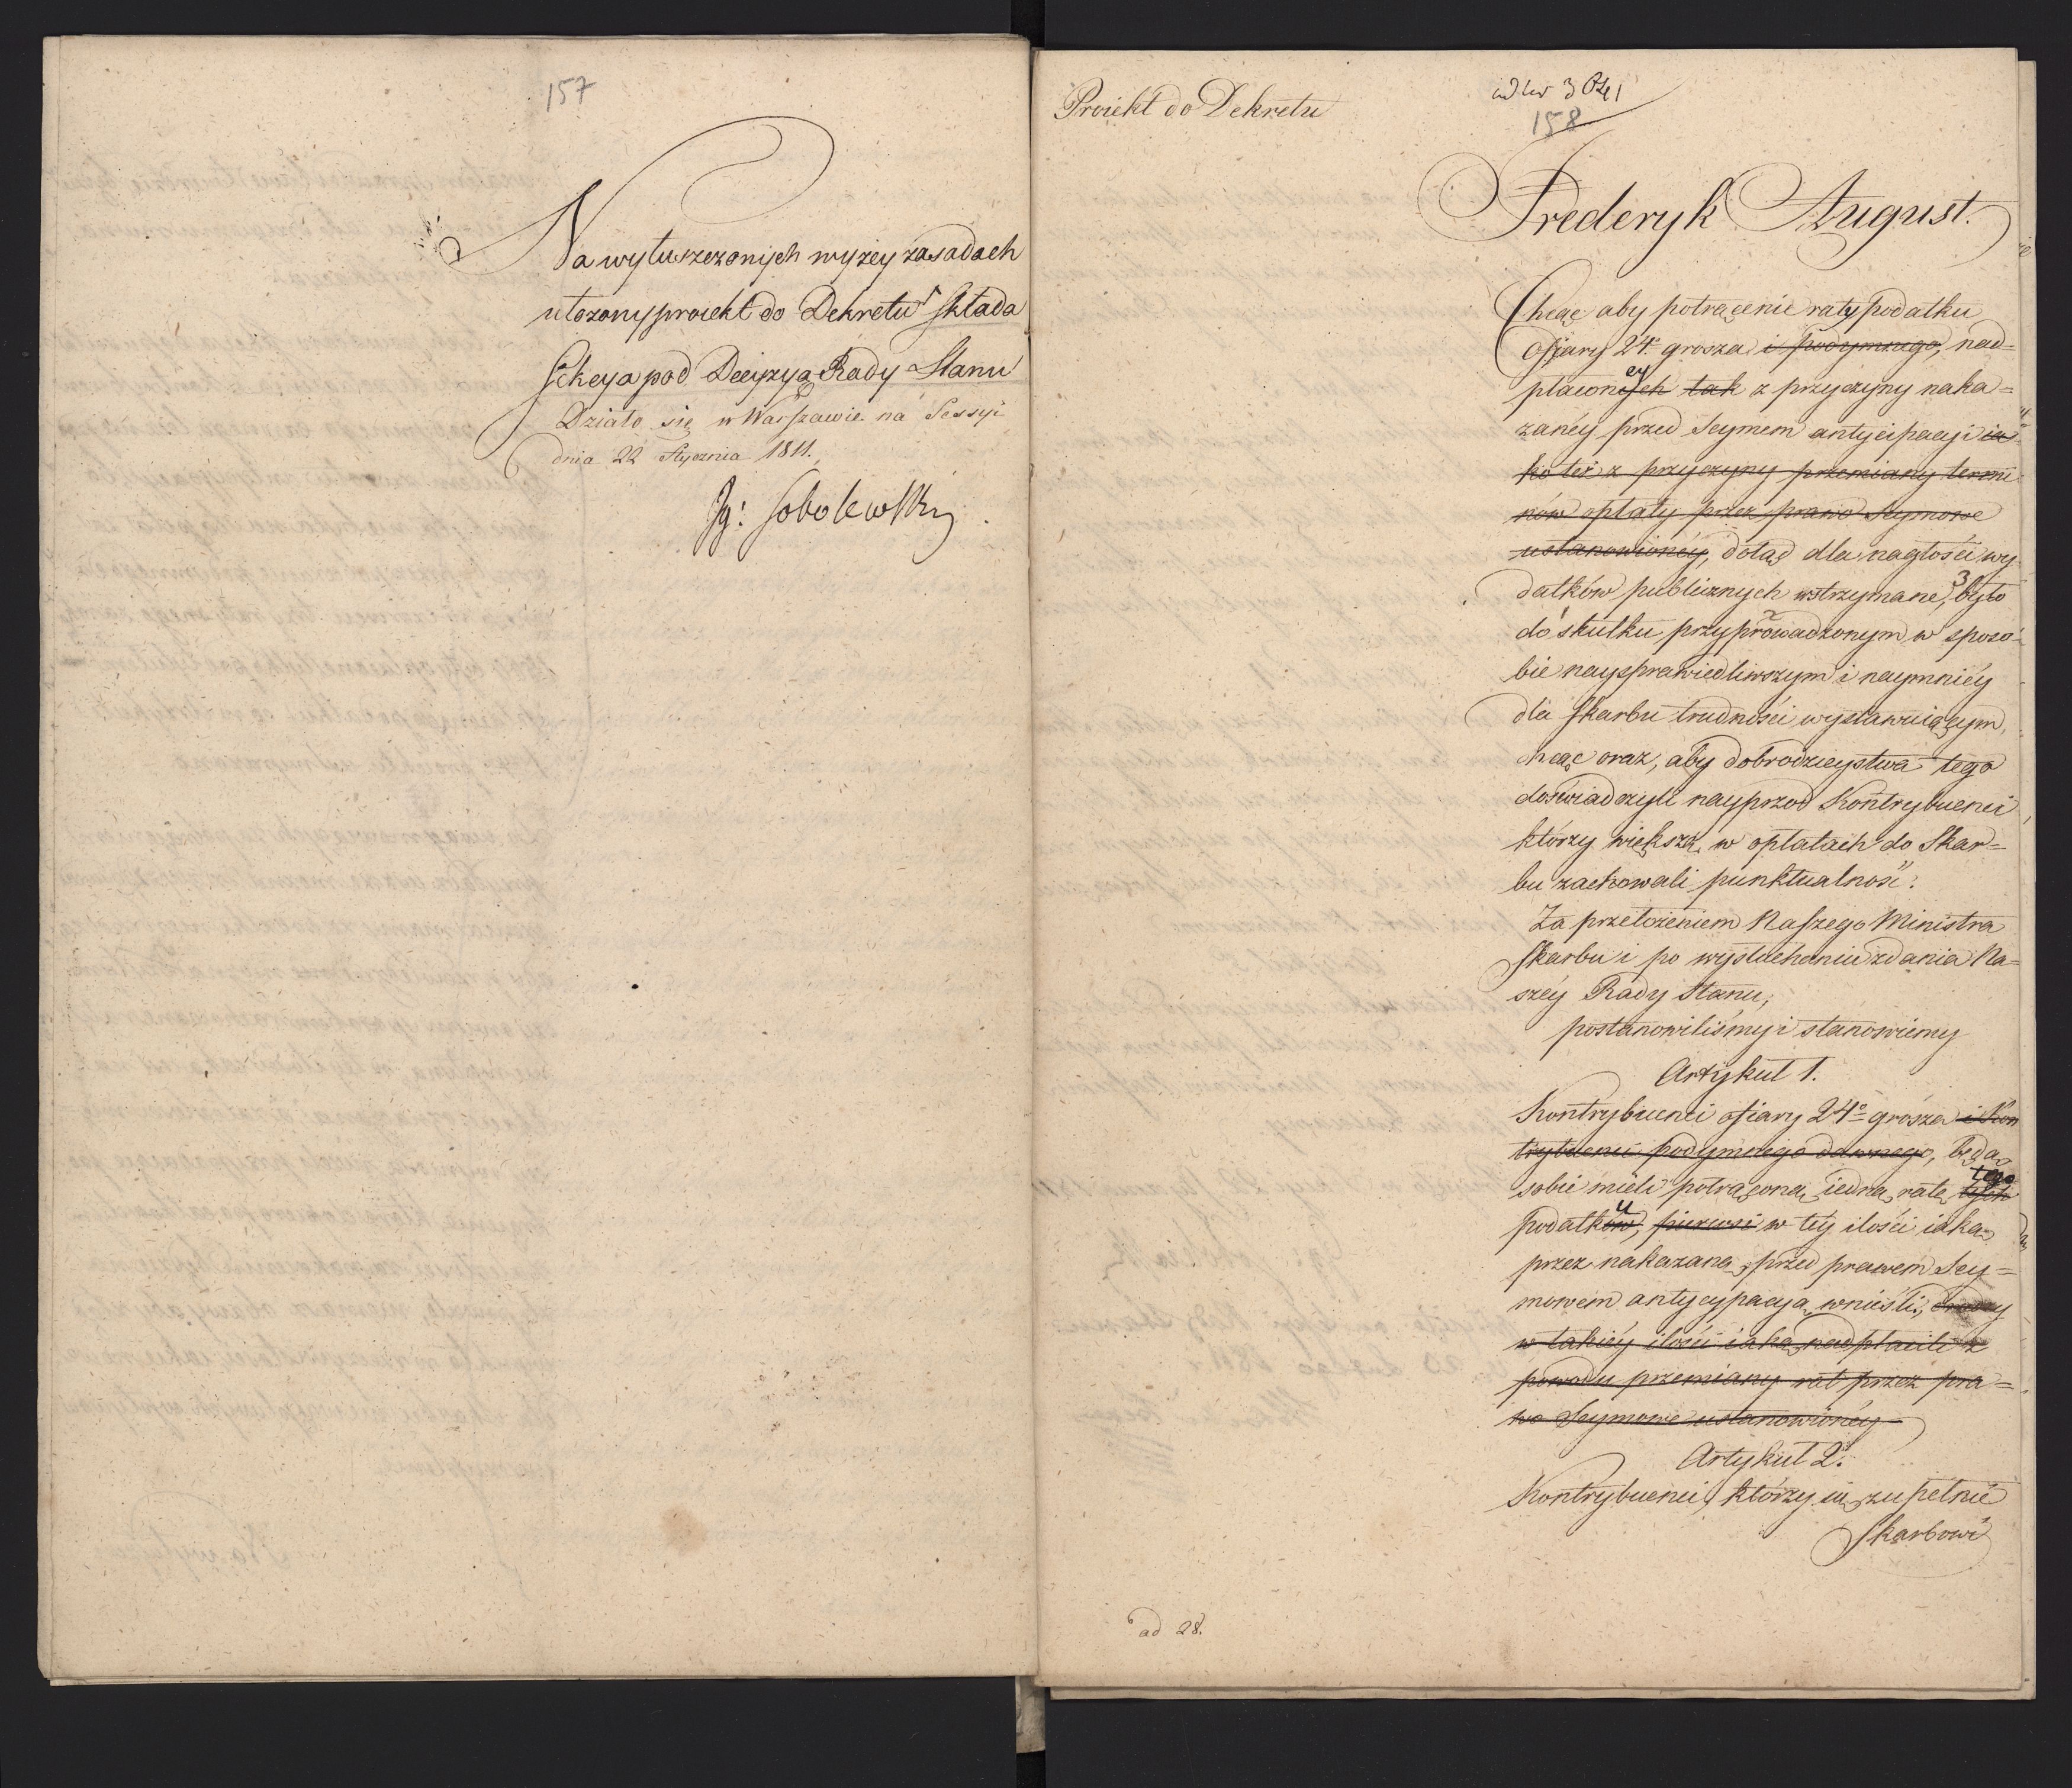 157
Na wyłuszczonych wyżey zasadach
ułożony proiekt do Dekretu składa
Sekcya pod Decyzyą Rady Stanu
Działo się w Warszawie na Sessyi
dnia 22 Stycznia 1811.
Ig: Sobolewski
Proiekt do Dekretu
158
Frederyk August.
Chcąc aby potrącenie raty podatku
Ofiary 24º grosza i podymnego, nad=
płaconych ey tak z przyczyny naka=
zanéy przed Seymem antycipacyi ia
ko też z przyczyny przemiany termi
nów opłaty przez prawo Seymowe
ustanowionéy, dotąd dla nagłości wy
datków publicznych wstrzymane, było
do skutku przyprowadzonym w sposo=
bie naysprawiedliwszym i naymniéy
dla skarbu trudności wystawuiącym,
chcąc oraz, aby dobrodzieystwa tego
doświadczyli nayprzod Kontrybuenci
którzy większą w opłatach do Skar=
bu zachowali punktualność.
Za przełożeniem Naszego Ministra
Skarbu i po wysłuchaniu zdania Na=
széy Rady Stanu,
postanowiliśmy i stanowiemy
Artykuł 1.
Kontrybuenci ofiary 24º grosza i Kon
trybuenci podymnego dawnego, będą
sobie mieli potrąconą iedną ratę tych tego
podatków, u pierwsi w téy ilości iaką
przez nakazaną przed prawem Sey=
mowem antycypacyą wnieśli, drudzy
w takiéy ilości iaką nadpłacili z
powodu przemiany rat przez pra=
wo Seymowe ustanowionéy
Artykuł 2.
Kontrybuenci, którzy ią zupełnie
Skarbowi
ad 28.